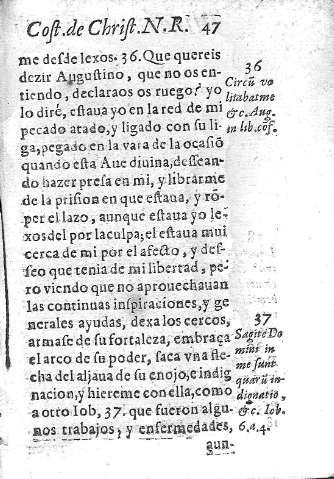 Cost. de Christ. N. R. 47
me desde lexos. 36. Que quereis
dezir Augustino, que no os en-
tiendo, declaraos os ruego? yo
lo diré, estaua yo en la red de mi
pecado atado, y ligado con su li-
ga, pegado en la vara de la ocasiõ
quando esta Aue diuina, dessean-
do hazer presa en mi, y librarme
de la prision en que estaua, y rõ-
per el lazo, aunque estaua yo le-
xos del por la culpa; el estaua mui
cerca de mi por el afecto, y des-
seo que tenia de mi libertad, pe-
ro viendo que no aprouechauan
las continuas inspiraciones, y ge
nerales ayudas, dexa los cercos,
armase de su fortaleza, embraça
el arco de su poder, saca vna fle-
cha del aljaua de su enojo, e indig
nacion, y hiereme con ella, como
a otro Iob, 37. que fueron algu-
nos trabajos, y enfermedades,
aun-
36
Circũ vo
litabat me
&c. Aug.
in lib. cõf.
37
Sagite Do
mini in
me sunt
quarũ in-
dignatio,
&c. Iob.
6. a, 4.